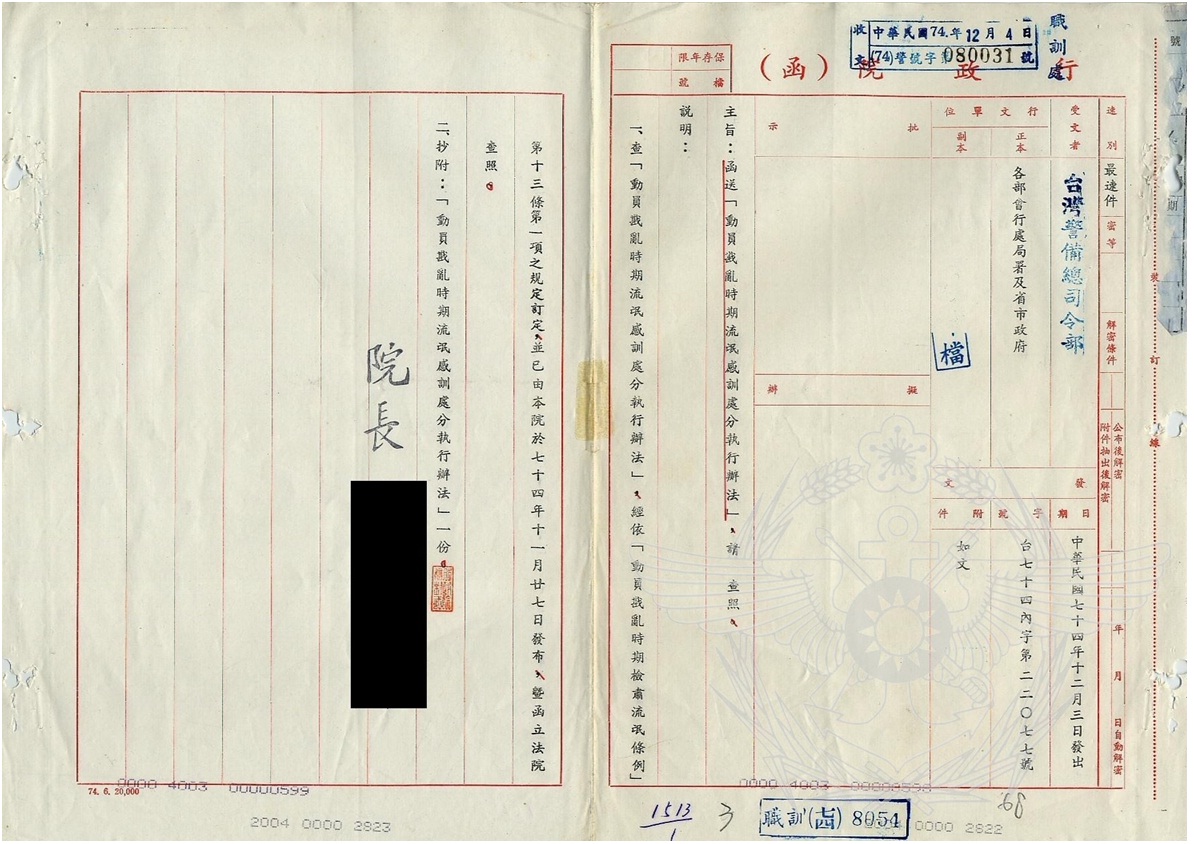 職訓處
收文
中華民國74年12月4日
(74)警號字第080031號
行政院(函)
保存年限
檔號
速別
最速件
密等
解密條件
公布後解密
附件抽出後解密
年月日自動解密
裝訂線
受文者
台灣警備總司令部
行文單位
正本
各部會行處局署及省市政府
副本
檔
發文
日期
中華民國七十四年十二月三日發出
字號
台七十四內字第二二〇七七號
附件
如文
批示
擬辦
主旨：函送「動員戡亂時期流氓感訓處分執行辦法」，請 查照。
說明：
一、查「動員戡亂時期流氓感訓處分執行辦法」，經依「動員戡亂時期檢肅流氓條例」
第十三條第一項之規定訂定，並已由本院於七十四年十一月廿七日發布，暨函立法院
查照。
二、抄附：「動員戡亂時期流氓感訓處分執行辦法」一份。
院長
74. 6. 20,000
0000 4003 00000599
2004 0000 2823
0000 4003 00000598
0000 2822
1513
1
3
職訓(七四) 8054
68